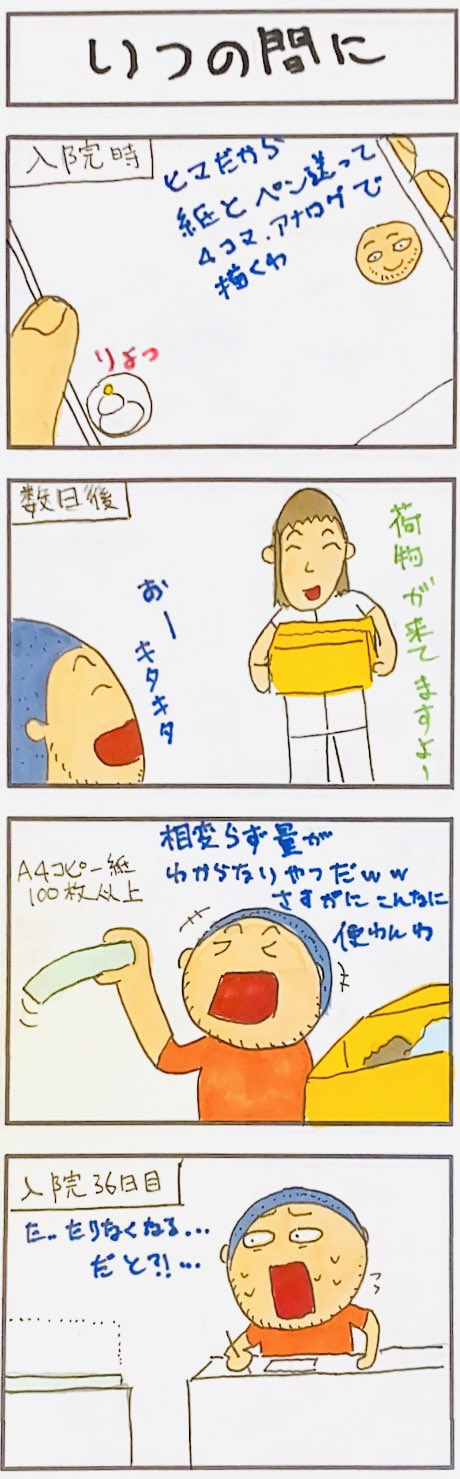 いつの間に
入院時
ヒマだから
紙とペン送って
4コマ、アナログで
描くわ
りょっ
数日後
荷物が来てますよー
おー
キタキタ
相変らず量が
わからないやつだww
さすがにこんなに
使わんわ
A4コピー紙
100枚以上
入院36日目
た…たりなくなる…
だと?!…